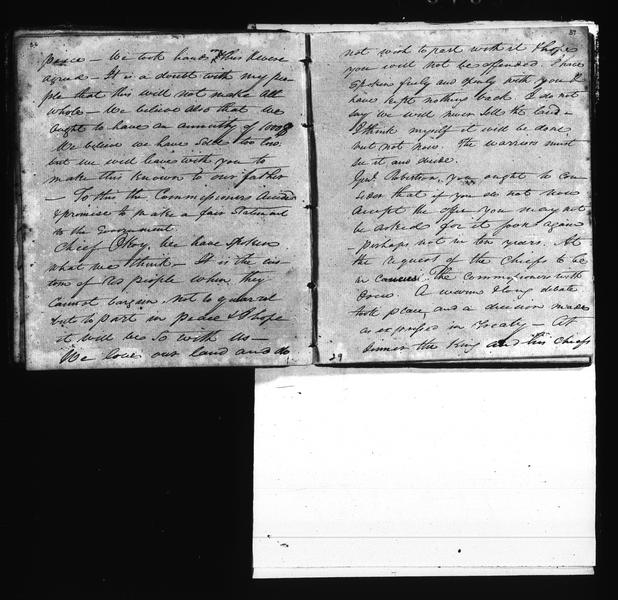 peace – We took hands & this Keene
agreed – It is a doubt with my peo-
ple that this will not make all
whole – We believe also that we
ought to have an annuity of 1000$
We believe we have sold too low
but we will leave with you to
make this known to our father
– To this the Commissioners
& promise to make a fair Statement
to the Government.
Chief Okoy, We have spoken
what we think – It is the cus-
tom of red people when they
cannot bargain. Not to quarrel
but to part in peace & I hope
it will be so with us –
We love our land and do
37
not wish to part with it & hope
you will not be offended. I have
spoken freely and openly with you I
have kept nothing back. I do not
say we will never sell the land –
I think myself it will be done
but not now. The warriors must
see it and decide.
Genl. Robertson, you ought to con-
sider that if you do not now
accept the offer you may not
be asked for it soon again
perhaps not in ten years. At
the request of the Chiefs to be
in the Commissioners with
drew. A warm & long debate
took place, and a decision made
as expressed in Treaty – At
29
dinner the King and his Chiefs